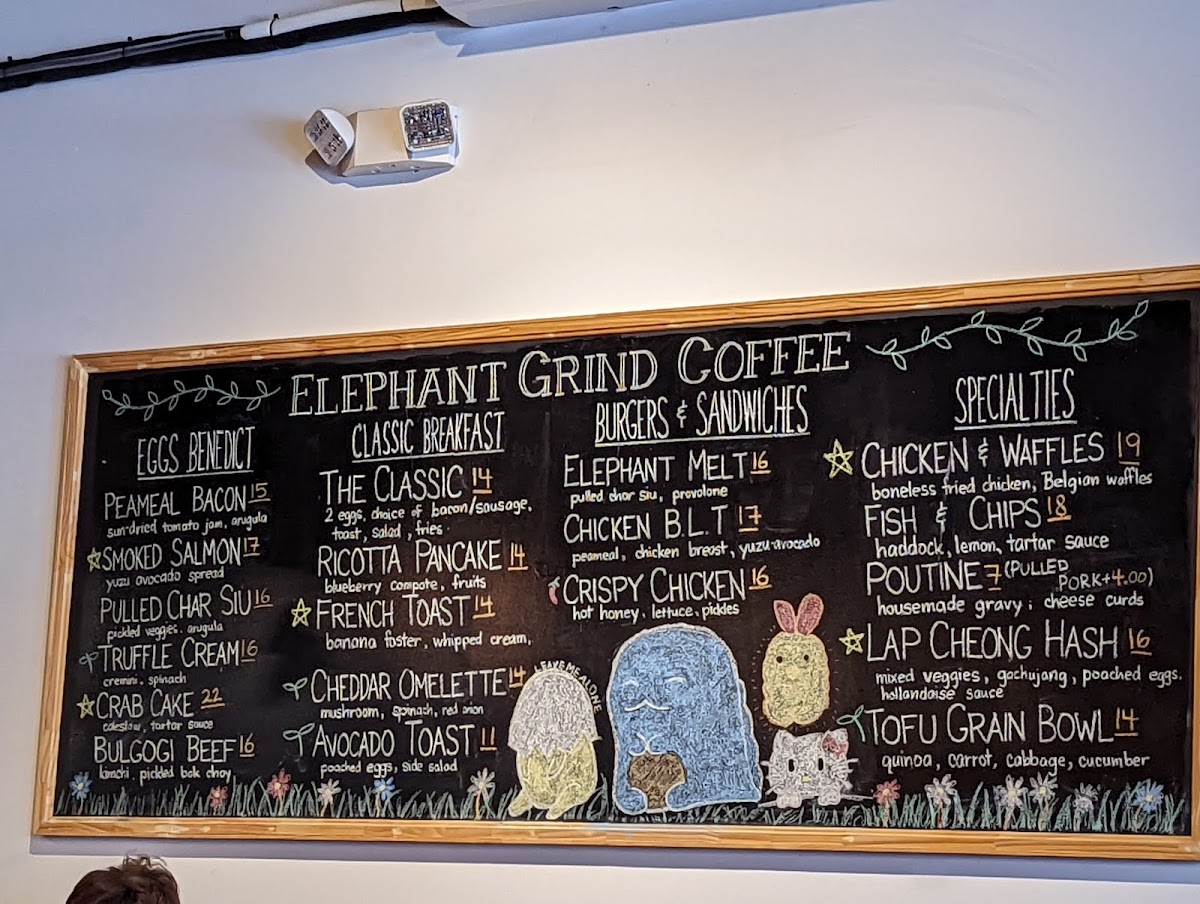 ELEPHANT GRIND COFFEE
EGGS BENEDICT
PEAMEAL BACON 15
sun-dried tomato jam, arugula
SMOKED SALMON 17
yuzu avocado spread
PULLED CHAR SIU 16
pickled veggies, arugula
TRUFFLE CREAM 16
cremini, spinach
CRAB CAKE 22
coleslaw, tartar sauce
BULGOGI BEEF 16
kimchi, pickled bok choy
CLASSIC BREAKFAST
THE CLASSIC 14
2 eggs, choice of bacon/sausage,
toast, salad, fries
RICOTTA PANCAKE 14
blueberry compote, fruits
FRENCH TOAST 14
banana foster, whipped cream,
CHEDDAR OMELETTE 14
mushroom, spinach, red onion
AVOCADO TOAST 11
poached eggs, side salad
BURGERS & SANDWICHES
ELEPHANT MELT 16
pulled char siu, provolone
CHICKEN B.L.T 17
peameal, chicken breast, yuzu-avocado
CRISPY CHICKEN 16
hot honey, lettuce, pickles
LEAVE ME ALONE
SPECIALTIES
CHICKEN & WAFFLES 19
boneless fried chicken, Belgian waffles
FISH & CHIPS 18
haddock, lemon, tartar sauce
POUTINE 7 (PULLED
PORK+4.00)
housemade gravy, cheese curds
LAP CHEONG HASH 16
mixed veggies, gochujang, poached eggs.
hollandaise sauce
TOFU GRAIN BOWL 14
quinoa, carrot, cabbage, cucumber